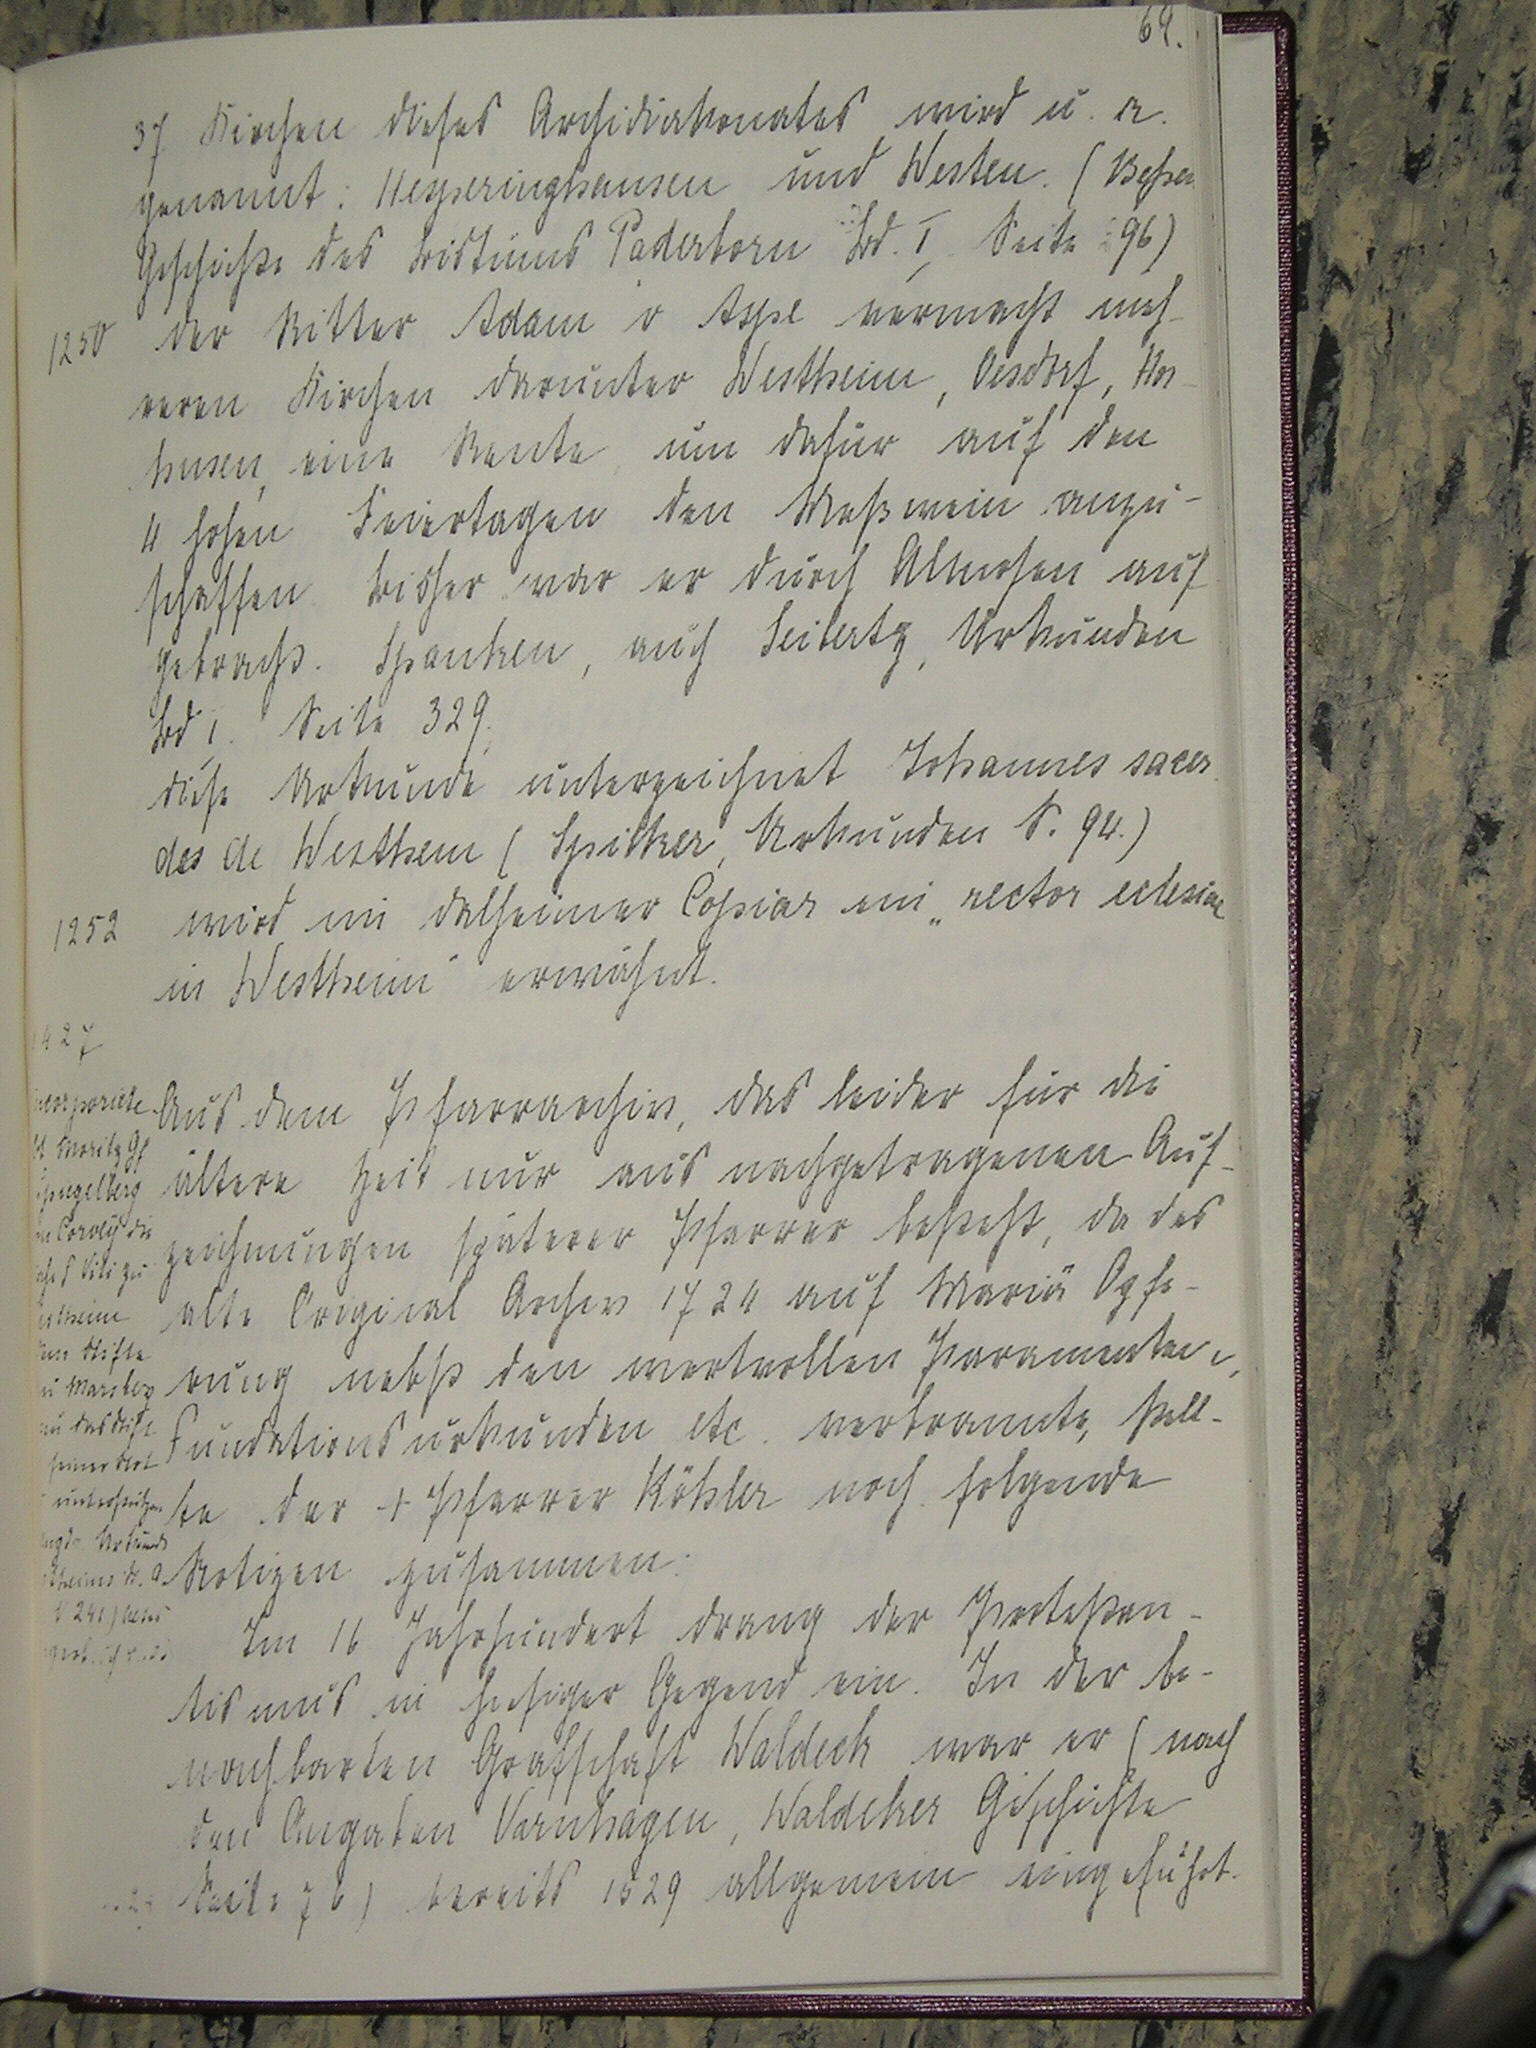 69.
37 Kirchen dieses Archidiakonates wird u. a.
genannt: Meyseringhausen und Westen. (Bessen
Geschichte des Bistums Paderborn Bd. I, Seite 296)
1250 der Ritter Adam v Aspe vermacht meh-
reren Kirchen darunter Westheim, Oesdorf, Hor-
husen, eine Rente um dafür auf den
4 hohen Feiertagen den Meßwein anzu-
schaffen. Bisher war er durch Almosen auf
gebracht. Spanken, auch Seibertz, Urkunden
Bd I. Seite 329.
diese Urkunde unterzeichnet Johannes sacer
des de Westhem (Spilker, Urkunden S. 94.)
1252 wird im dalheimer Copiar ein „rector eclesiae
in Westheim" erwähnt.
1427
incorporirte
Moritz Gf
Spegelberg
Corvey die
S Viti zu
Westheim
dem Stifte
zu Marsberg
um das dortige
Aus dem Pfarrarchiv, das leider für die
ältere Zeit nur aus nachgetragenen Auf-
zeichnungen späterer Pfarrer besteht, da das
alte Original Archiv 1724 auf Mariä Opfe-
rung nebst den wertvollen Paramenten,
Fundationsurkunden etc. verbrannte, stell-
te der + Pfarrer Köhler noch folgende
Notizen zusammen:
Im 16 Jahrhundert drang der Protestan-
tismus in hiesiger Gegend ein. In der be-
nachbarten Grafschaft Waldeck war er (nach
den Angaben Varnhagen, Waldeker Geschichte
Seite 76) bereits 1529 allgemein eingeführt.